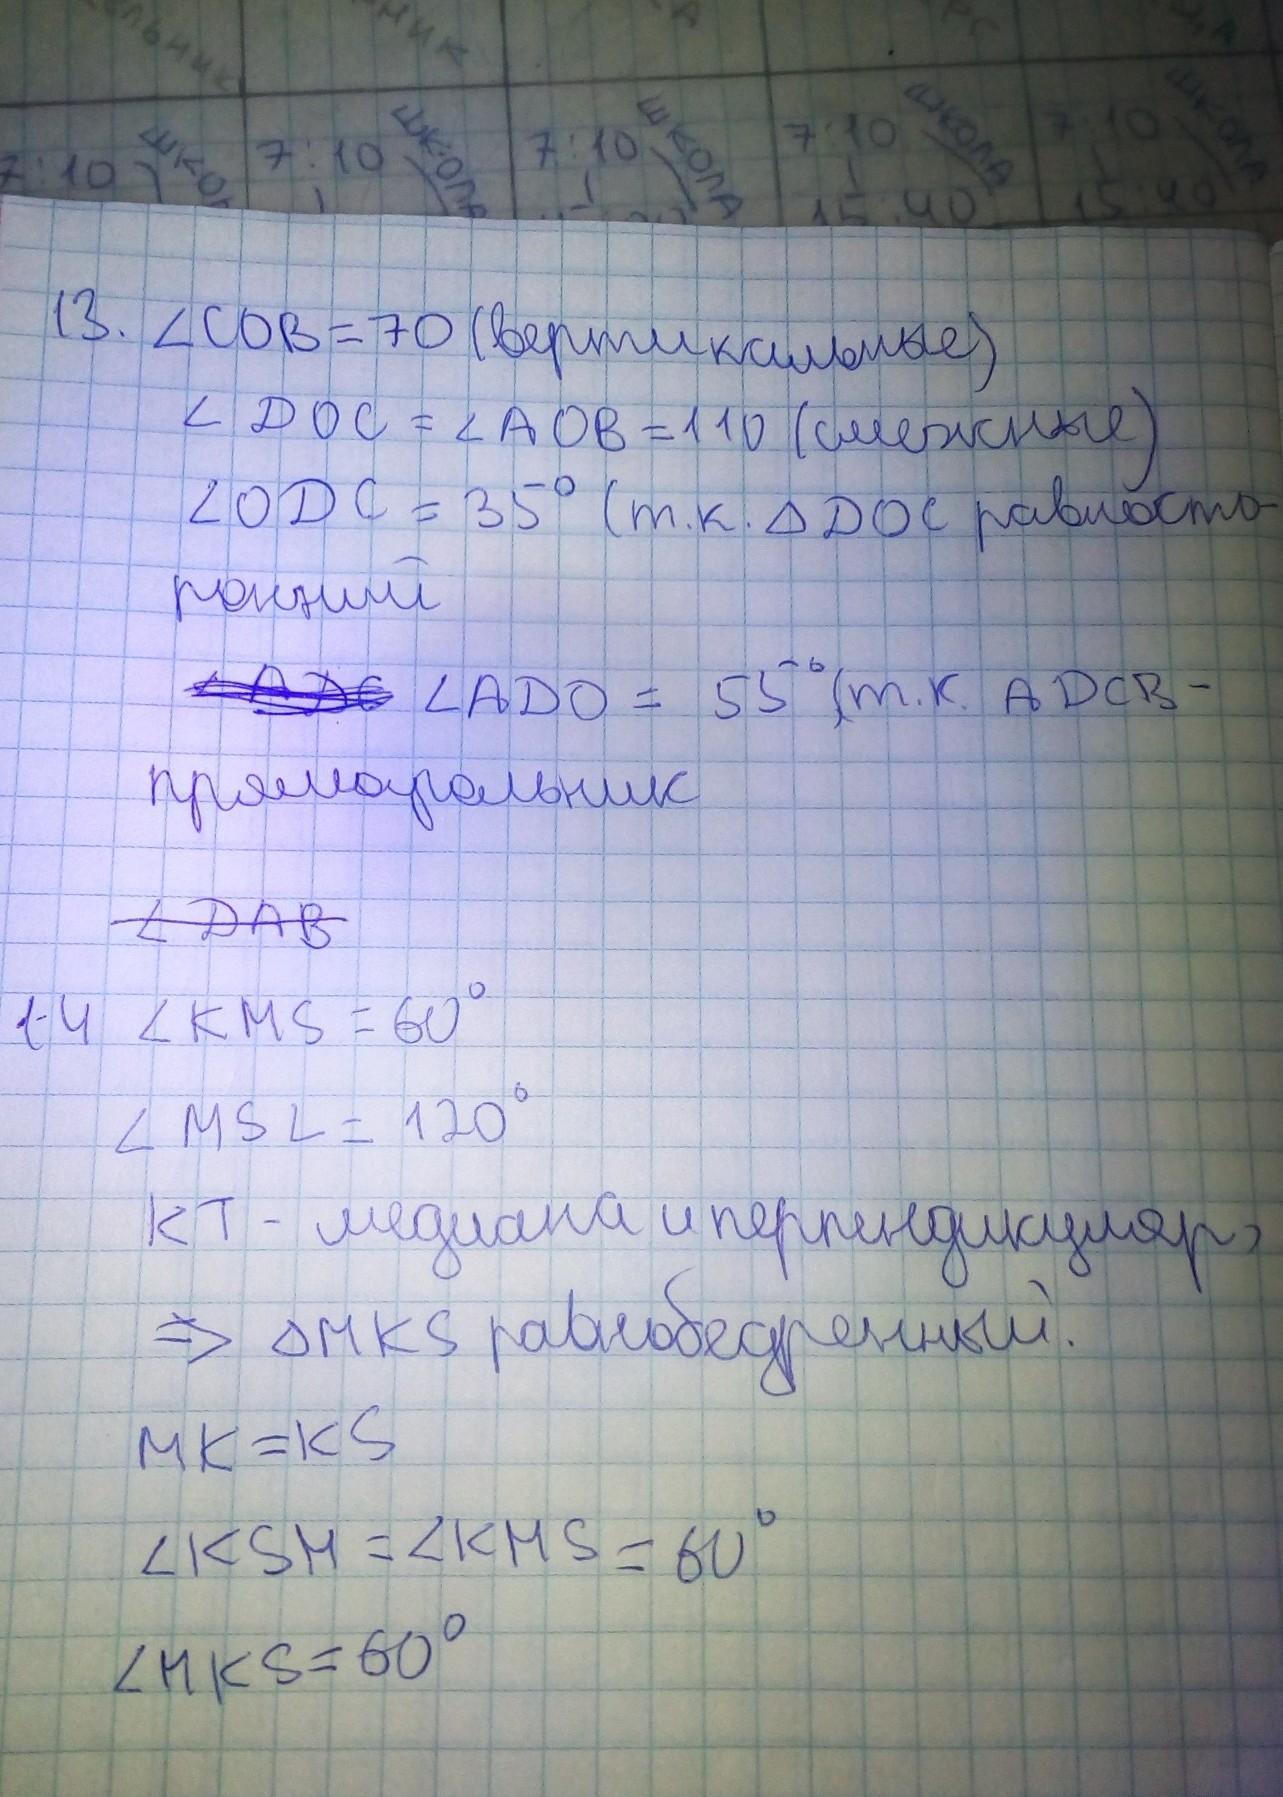 7:10 ШКОЛ 7:10 ШКОЛА 7:10 ШКОЛА 7:10 ШКОЛА 7:10 ШКОЛА
15:40 15:40
13. ∠COB = 70 (вертикальные)
∠DOC = ∠AOB = 110 (смежные)
∠ODC = 35° (т.к. △DOC равносто-
ронний
∠ADO = 55° (т.к. ADCB -
прямоугольник
∠DAB
14 ∠KMS = 60°
∠MSL = 120°
KT - медиана и перпендикуляр,
=> △MKS равнобедренный.
MK = KS
∠KSM = ∠KMS = 60°
∠MKS = 60°